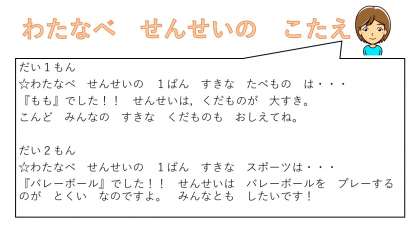 わたなべ　せんせいの　こたえ
だい１もん
☆わたなべ　せんせいの　１ばん　すきな　たべもの　は・・・
『もも』でした！！　せんせいは，くだものが　大すき。
こんど　みんなの　すきな　くだものも　おしえてね。
だい２もん
☆わたなべ　せんせいの　１ばん　すきな　スポーツは・・・
『バレーボール』でした！！　せんせいは　バレーボールを　プレーする
のが　とくい　なのですよ。　みんなとも　したいです！